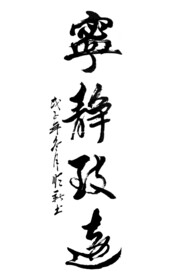 寧靜致遠
戊子年冬月